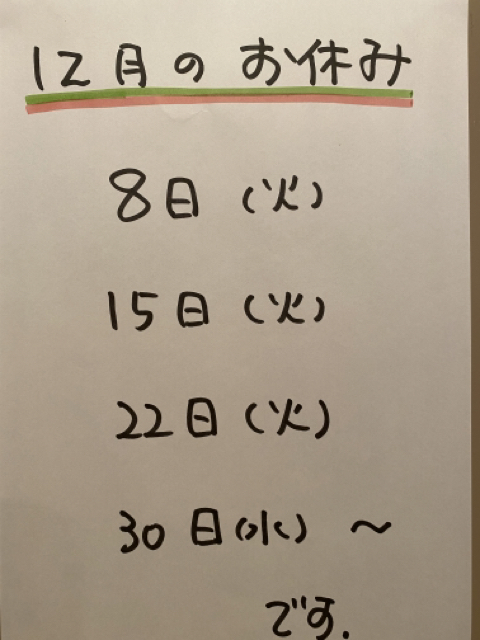 12月のお休み
8日(火)
15日(火)
22日(火)
30日(水)〜
です.